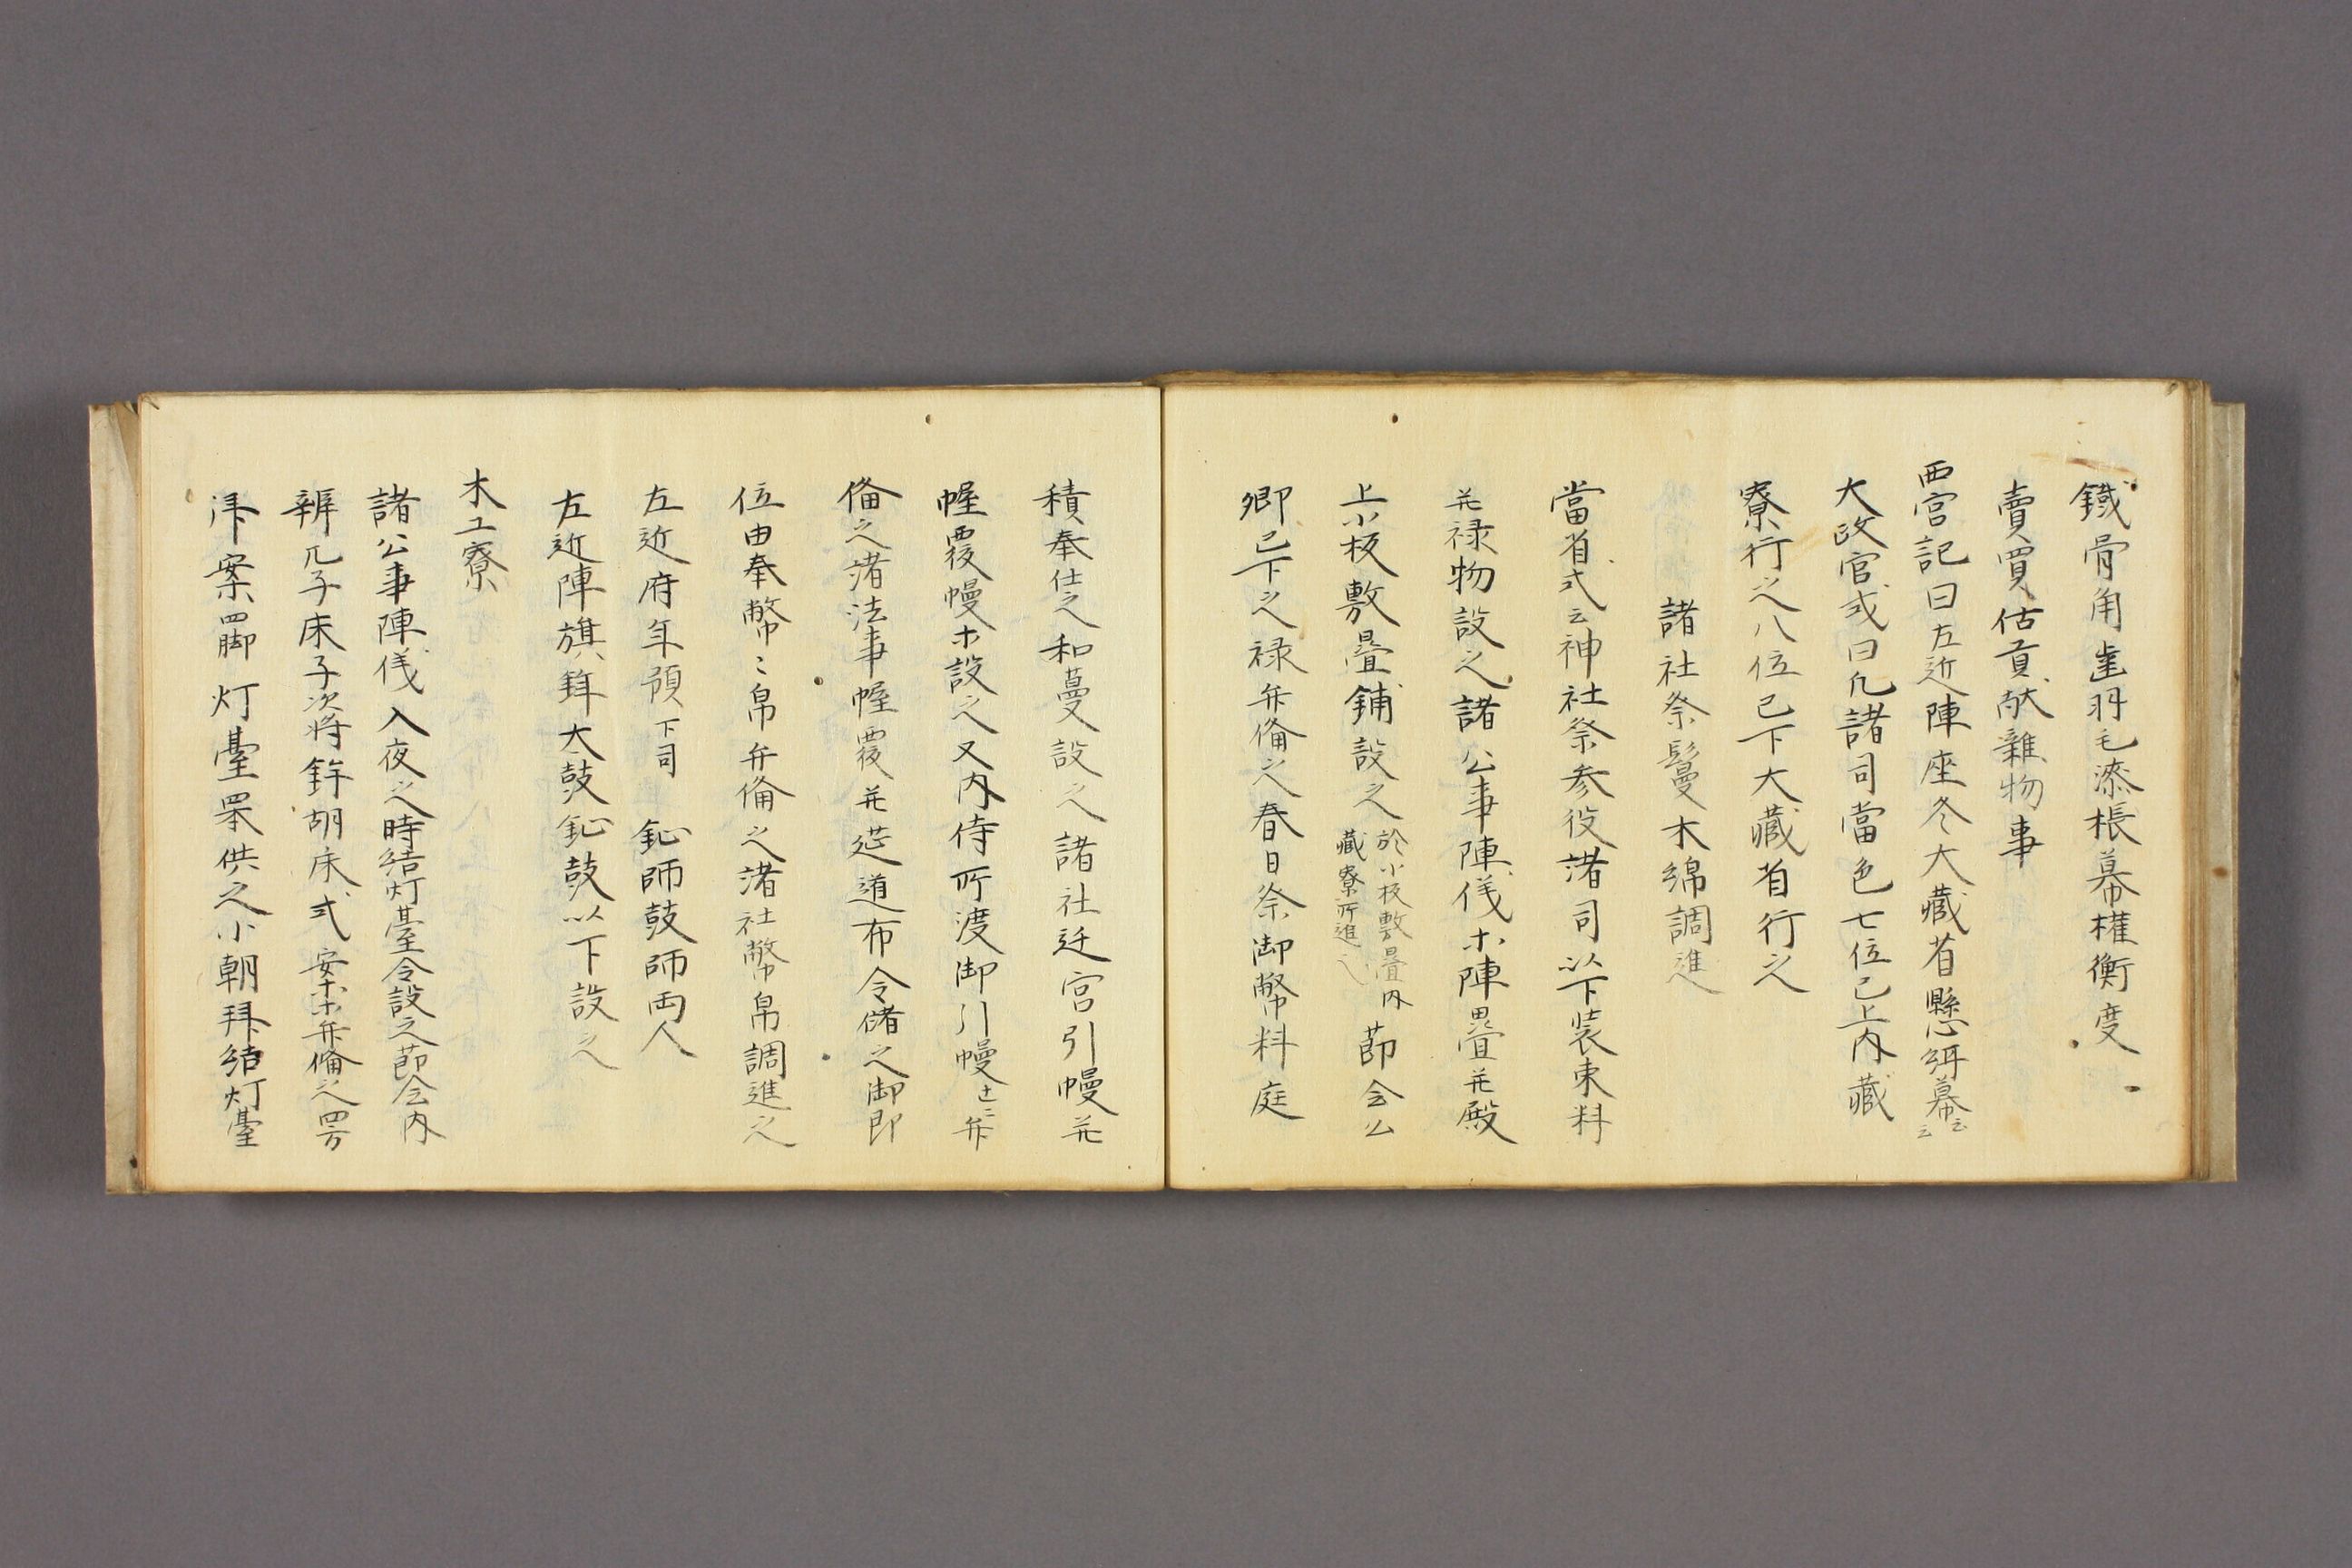 鐵骨角歯羽毛漆帳幕權衡度
賣買估貢献雜物事
西宮記曰左近陣座冬大藏省懸絣幕云云
大政官式曰凡諸司當色七位已上内藏
寮行之八位已下大藏省行之
諸社祭鬘木綿調進
當省式云神社祭参役諸司以下装束料
并禄物設之諸公事陣儀木陣疊并殿
上小板敷疊鋪設之於小板敷疊内藏寮所進之節会公
卿已下之禄弁俻之春日祭御幣料庭
積奉仕之和蔓設之諸社迁宮引幔并
幄覆幔木設之又内侍所渡御引幔士二弁
俻之諸法事幄覆并莚道布令儲之御即
位由奉幣々帛弁俻之諸社幣帛調進之
左近府年預下司 鉦師鼓師両人
左近陣旗鉾大鼓鉦鼓以下設之
木工寮
諸公事陣儀入夜之時結灯臺令設之節会内
辨兀子床子次将鉾胡床式安木弁俻之四方
拜案四脚灯臺四罘供之小朝拜結灯臺